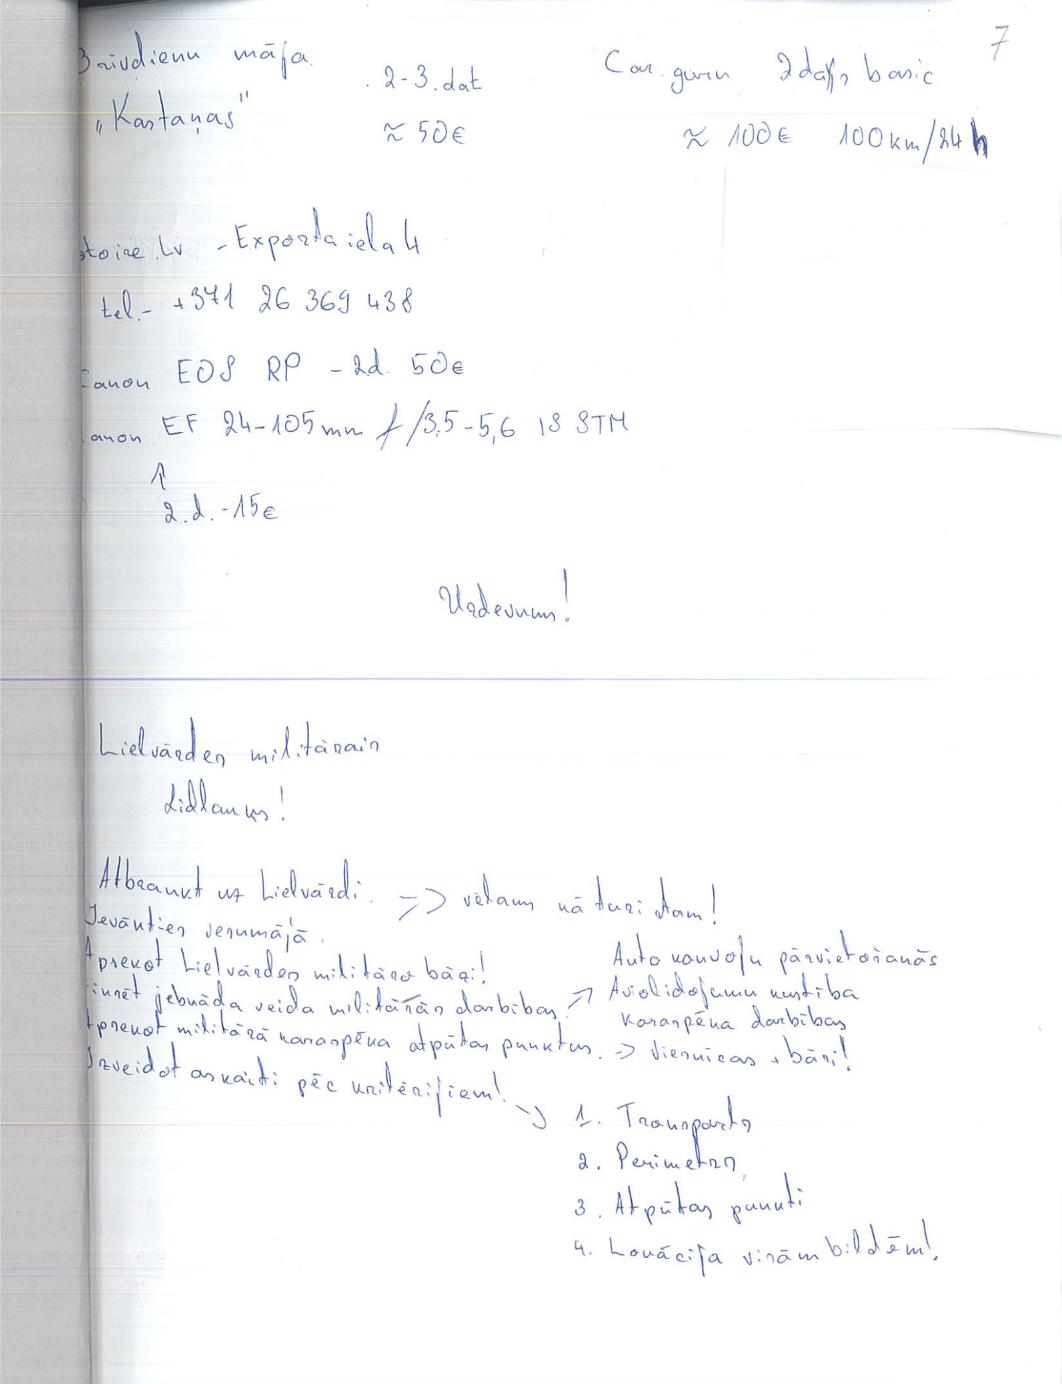 7
Brīvdienu māja
"Kastaņas"
2-3.dat
≈ 50€
Car guru 2days basic
≈ 100€ 100km/24h
stoire.lv - Exporta iela 4
tel.- +371 26 369 438
Canon EOS RP - 2d. 50€
Canon EF 24-105mm f/3,5-5,6 IS STM
↑
2.d.-15€
Uzdevums!
Lielvārdes militārais
Lidlauks!
Atbraukt uz Lielvārdi. => vēlams kā turi
Ievākties
Apsekot Lielvārdes militāro bāzi!
jebkāda veida militārās darbības. => Auto konvoju pārvietošanās
Aviolidojumu kustība
Karaspēka darbības
Apsekot militārā karaspēka atpūtas punktus. => Viesnīcas + bāri!
Izveidot atskaiti pēc kritērijiem! =>
1. Transports
2. Perimetrs
3. Atpūtas punkti
4. Lokācija visām bildēm!